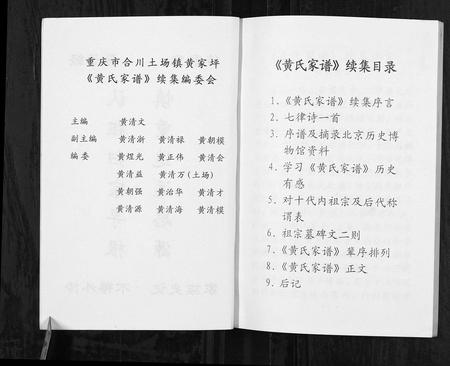 重庆市合川土场镇黄家坪
《黄氏家谱》续集编委会
主编 黄清文
副主编 黄清浙 黄清禄 黄朝模
编委 黄煜光 黄正伟 黄清会
黄清益 黄清万(土场)
黄朝强 黄治华 黄清才
黄清源 黄清海 黄清模
《黄氏家谱》续集目录
1. 《黄氏家谱》续集序言
2. 七律诗一首
3. 序谱及摘录北京历史博
物馆资料
4. 学习《黄氏家谱》历史
有感
5. 对十代内祖宗及后代称
谓表
6. 祖宗墓碑文二则
7. 《黄氏家谱》辈序排列
8. 《黄氏家谱》正文
9. 后记